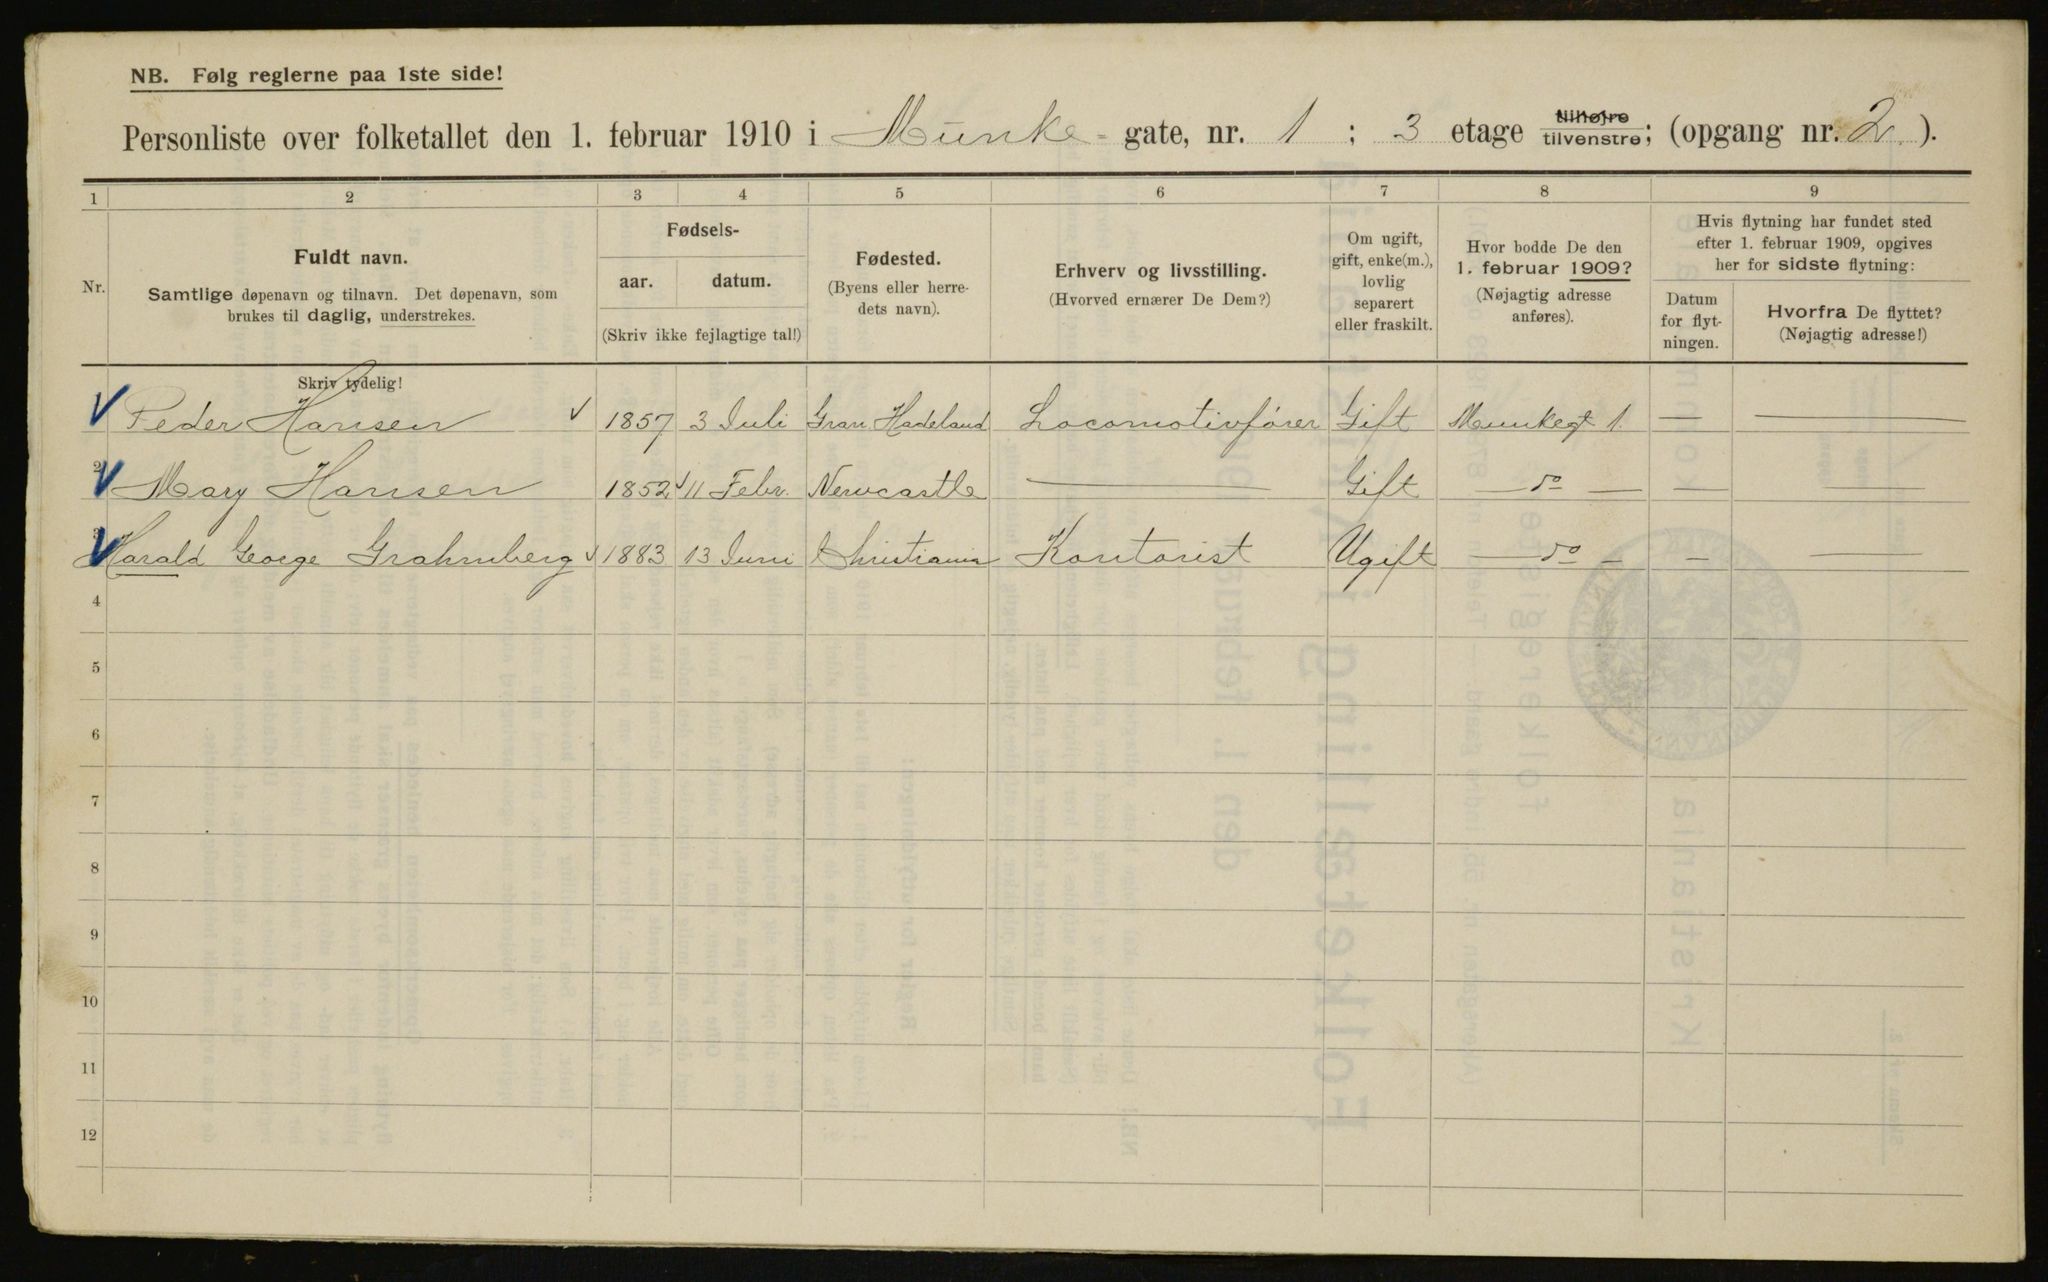 NB. Følg reglerne paa 1ste side!
Personliste over folketallet den 1. februar 1910 i Munke-gate, nr. 1 ; 3 etage tilhøjre tilvenstre; (opgang nr. 2 ).
1 2 3 4 5 6 7 8 9
Nr.
Fuldt navn.
Samtlige døpenavn og tilnavn. Det døpenavn, som
brukes til daglig, understrekes.
Fødsels-
aar. datum.
(Skriv ikke fejlagtige tal!)
Fødested.
(Byens eller herre-
dets navn).
Erhverv og livsstilling.
(Hvorved ernærer De Dem?)
Om ugift,
gift, enke(m.),
lovlig
separert
eller fraskilt.
Hvor bodde De den
1. februar 1909?
(Nøjagtig adresse
anføres).
Hvis flytning har fundet sted
efter 1. februar 1909, opgives
her for sidste flytning:
Datum
for flyt-
ningen.
Hvorfra De flyttet?
(Nøjagtig adresse!)
Skriv tydelig!
Peder Hansen 1857 3 Juli Gran Hadeland Locomotivfører Gift Munkegt 1. — —
2 Mary Hansen 1852 11 Febr. Newcastle — Gift — do — — —
3 Harald George Grahmberg 1883 13 Juni Christiania Kontorist Ugift — do — — —
4
5
6
7
8
9
10
11
12